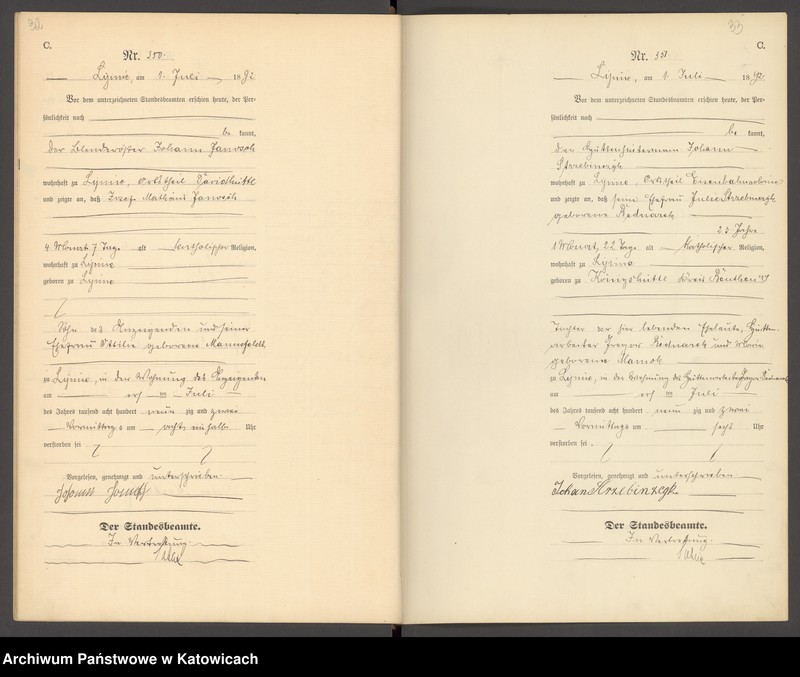 32
C.
Nr. 350.
Lipine, am 1. Juli 1892
Vor dem unterzeichneten Standesbeamten erschien heute, der Per-
sönlichkeit nach
be kannt,
der Johann Janosch
wohnhaft zu Lipine, Ortstheil Davidhütte
und zeigte an, daß Josef Janosch
4 Monat 7 Tage alt katholischer Religion,
wohnhaft zu Lipine
geboren zu Lipine
Sohn des Anzeigenden und seiner
Ehefrau Ottilie geborene
zu Lipine, in der Wohnung des Anzeigenden
am ersten Juli
des Jahres tausend acht hundert neun zig und zwei
Vormittags um achteinhalb Uhr
verstorben sei
Vorgelesen, genehmigt und unterschrieben
Johann
Der Standesbeamte.
In Vertretung.
33
C.
Nr. 351
Lipine, am 1. Juli 1892.
Vor dem unterzeichneten Standesbeamten erschien heute, der Per-
sönlichkeit nach
be kannt,
der Johann
Strzebinczyk
wohnhaft zu Lipine, Ortstheil
und zeigte an, daß seine Ehefrau Julie Strzebinczyk
geborene Bednarek
23 Jahre
1 Monat, 22 Tage alt katholischer Religion,
wohnhaft zu Lipine
geboren zu Königshütte Kreis Beuthen
Tochter der hier lebenden Eheleute, Hütten-
arbeiter Bednarek und Marie
geborene
zu Lipine, in der Wohnung des Hüttenarbeiters Bednarek
am ersten Juli
des Jahres tausend acht hundert neun zig und zwei
Vormittags um sechs Uhr
verstorben sei.
Vorgelesen, genehmigt und unterschrieben
Johan Strzebinzcyk
Der Standesbeamte.
In Vertretung.
Archiwum Państwowe w Katowicach